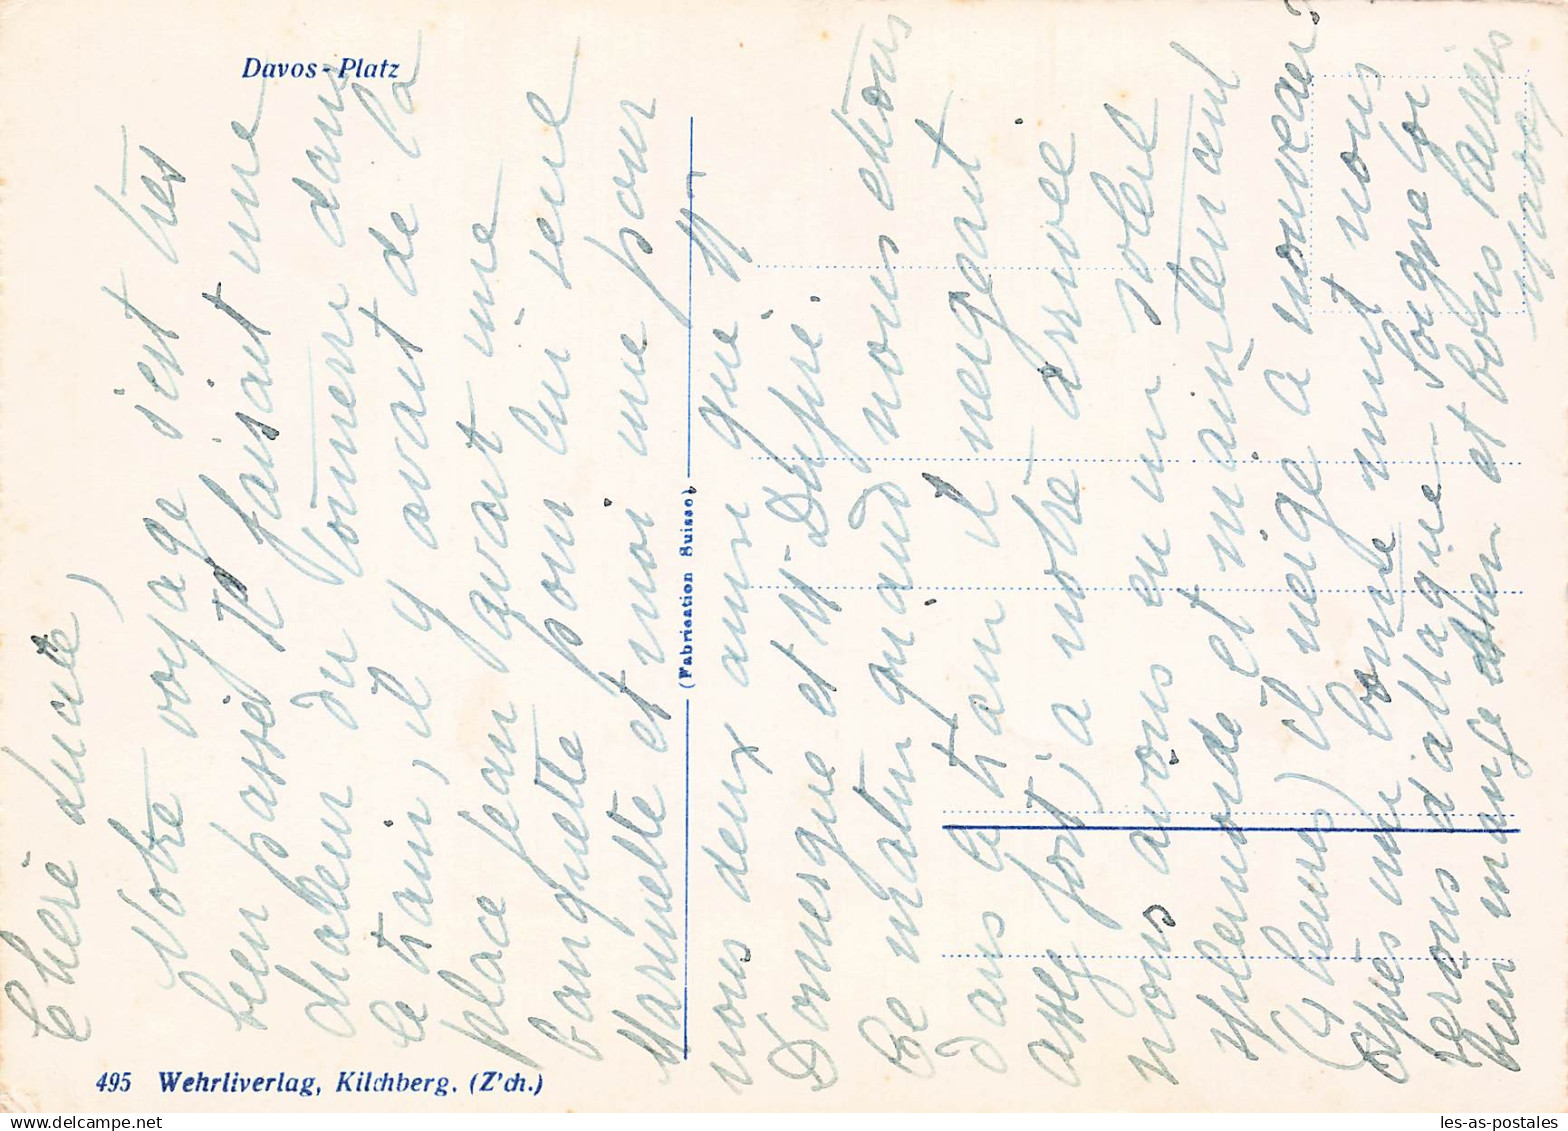 Davos-Platz
Chère
Notre voyage s'est très
bien passé faisait une
chaleur du tonnerre dans
le train, il y avait de la
place Jean avait une
banquette pour lui seul
et moi une pour
nous deux ainsi que M
et Mr Dupré.
Ce matin quand nous étions
dans le train il neigeait
assez fort, à notre arrivée
nous avons eu un soleil
splendide et maintenant
(4 heures) il neige à nouveau?
Après une bonne nuit nous
serons d'attaque. Soigne toi
bien mange bien et bons baisers
(Fabrication Suisse)
495 Wehrliverlag, Kilchberg. (Z'ch.)
les-as-postales